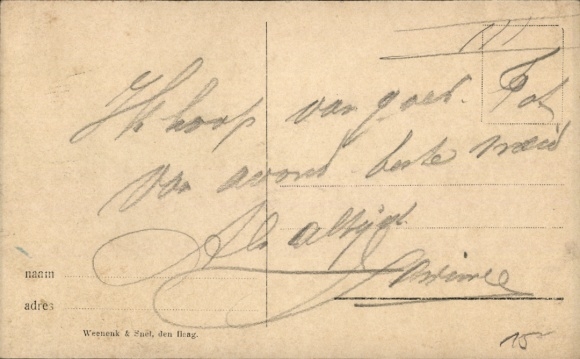 III
Ik hoop van goed. Tot
van avond beste meid
Als altijd
naam
adres
Weenenk & Snel, den Haag.
15-